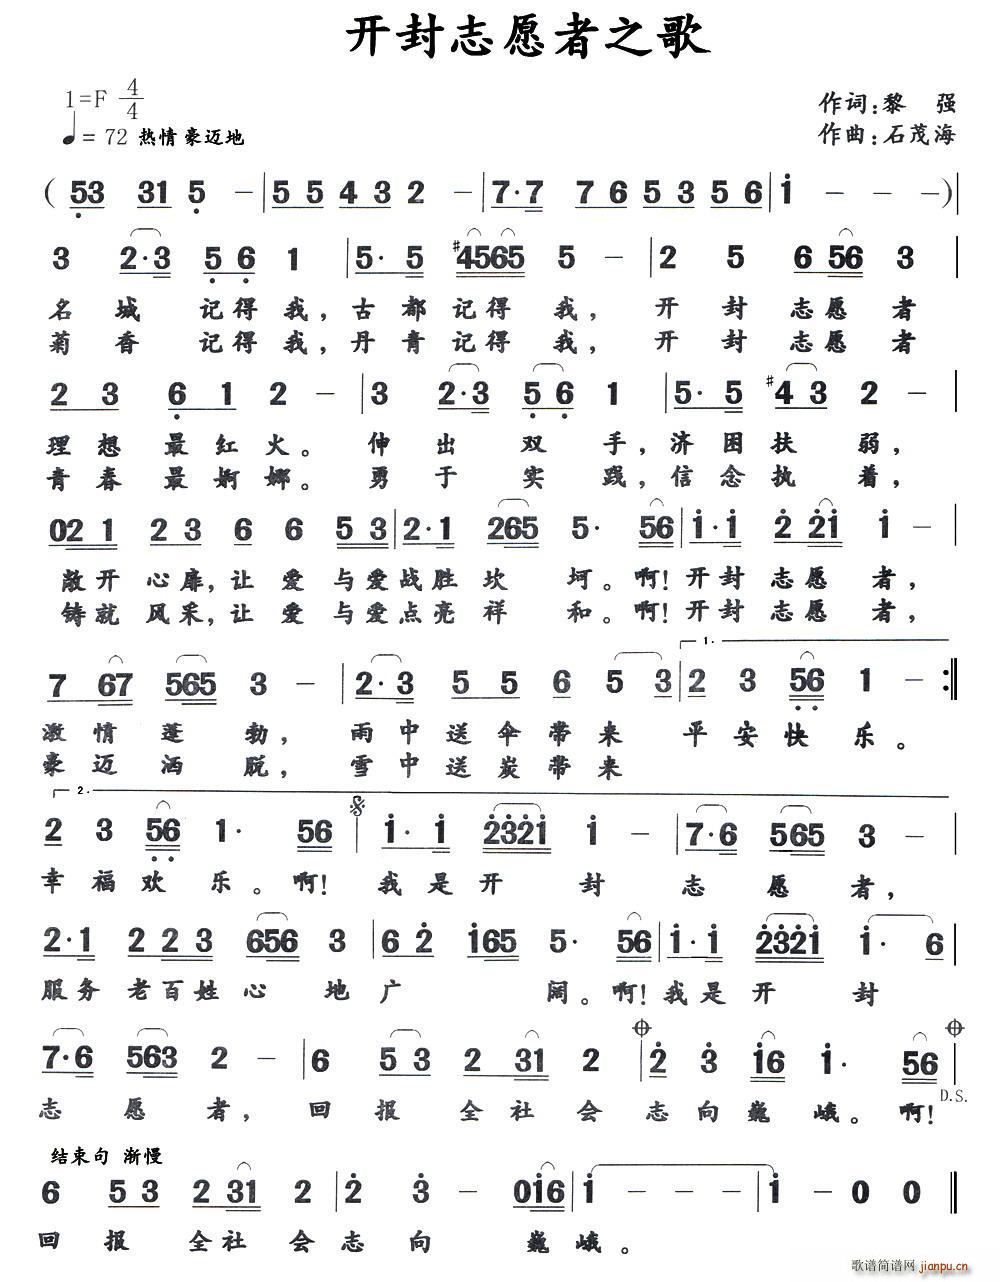 开封志愿者之歌
1=F 4/4
作词：黎 强
♩= 72 热情 豪迈地
作曲：石茂海
( 53 31 5 - | 55 43 2 - | 7·7 76 53 56 | i - - - ) |
3 2·3 56 1 | 5· 5 #4565 5 - | 2 5 6 56 3 |
名 城 记得我，古 都 记得 我，开 封 志愿者
菊 香 记得我，丹 青 记得 我，开 封 志愿者
2 3 6 1 2 - | 3 2·3 56 1 | 5· 5 #43 2 - |
理 想 最 红 火。 伸 出 双 手，济 困 扶 弱，
青 春 最 婀 娜。 勇 于 实 践，信 念 执 着，
021 23 6 6 53 | 2·1 265 5· 56 | i·i 2 2i i - |
敞开 心扉，让 爱 与爱战胜坎 坷。啊！开封 志愿 者，
铸就 风采，让 爱 与爱点亮祥 和。啊！开封 志愿 者，
1.
7 67 565 3 - | 2·3 5 5 6 5 3 | 2 3 56 1 - :‖
激 情 蓬 勃， 雨中 送 伞 带 来 平 安 快 乐。
豪 迈 洒 脱， 雪中 送 炭 带 来
2.
2 3 56 1· 56 | i·i 232i i - | 7·6 565 3 - |
幸 福 欢 乐。啊！ 我 是 开 封 志 愿 者，
2·1 2 2 3 656 3 | 6 2 i65 5· 56 | i·i 232i i· 6 |
服务 老百姓 心 地 广 阔。啊！我是 开 封
7·6 563 2 - | 6 5 3 2 31 2 | 2 3 i6 i· 56 |
D.S.
志 愿 者， 回 报 全 社 会 志 向 巍 峨。啊！
结束句 渐慢
6 5 3 2 31 2 | 2 3 - 0i6 | i - - - | i - 0 0 ‖
回 报 全 社 会 志 向 巍 峨。
歌谱简谱网
jianpu.cn